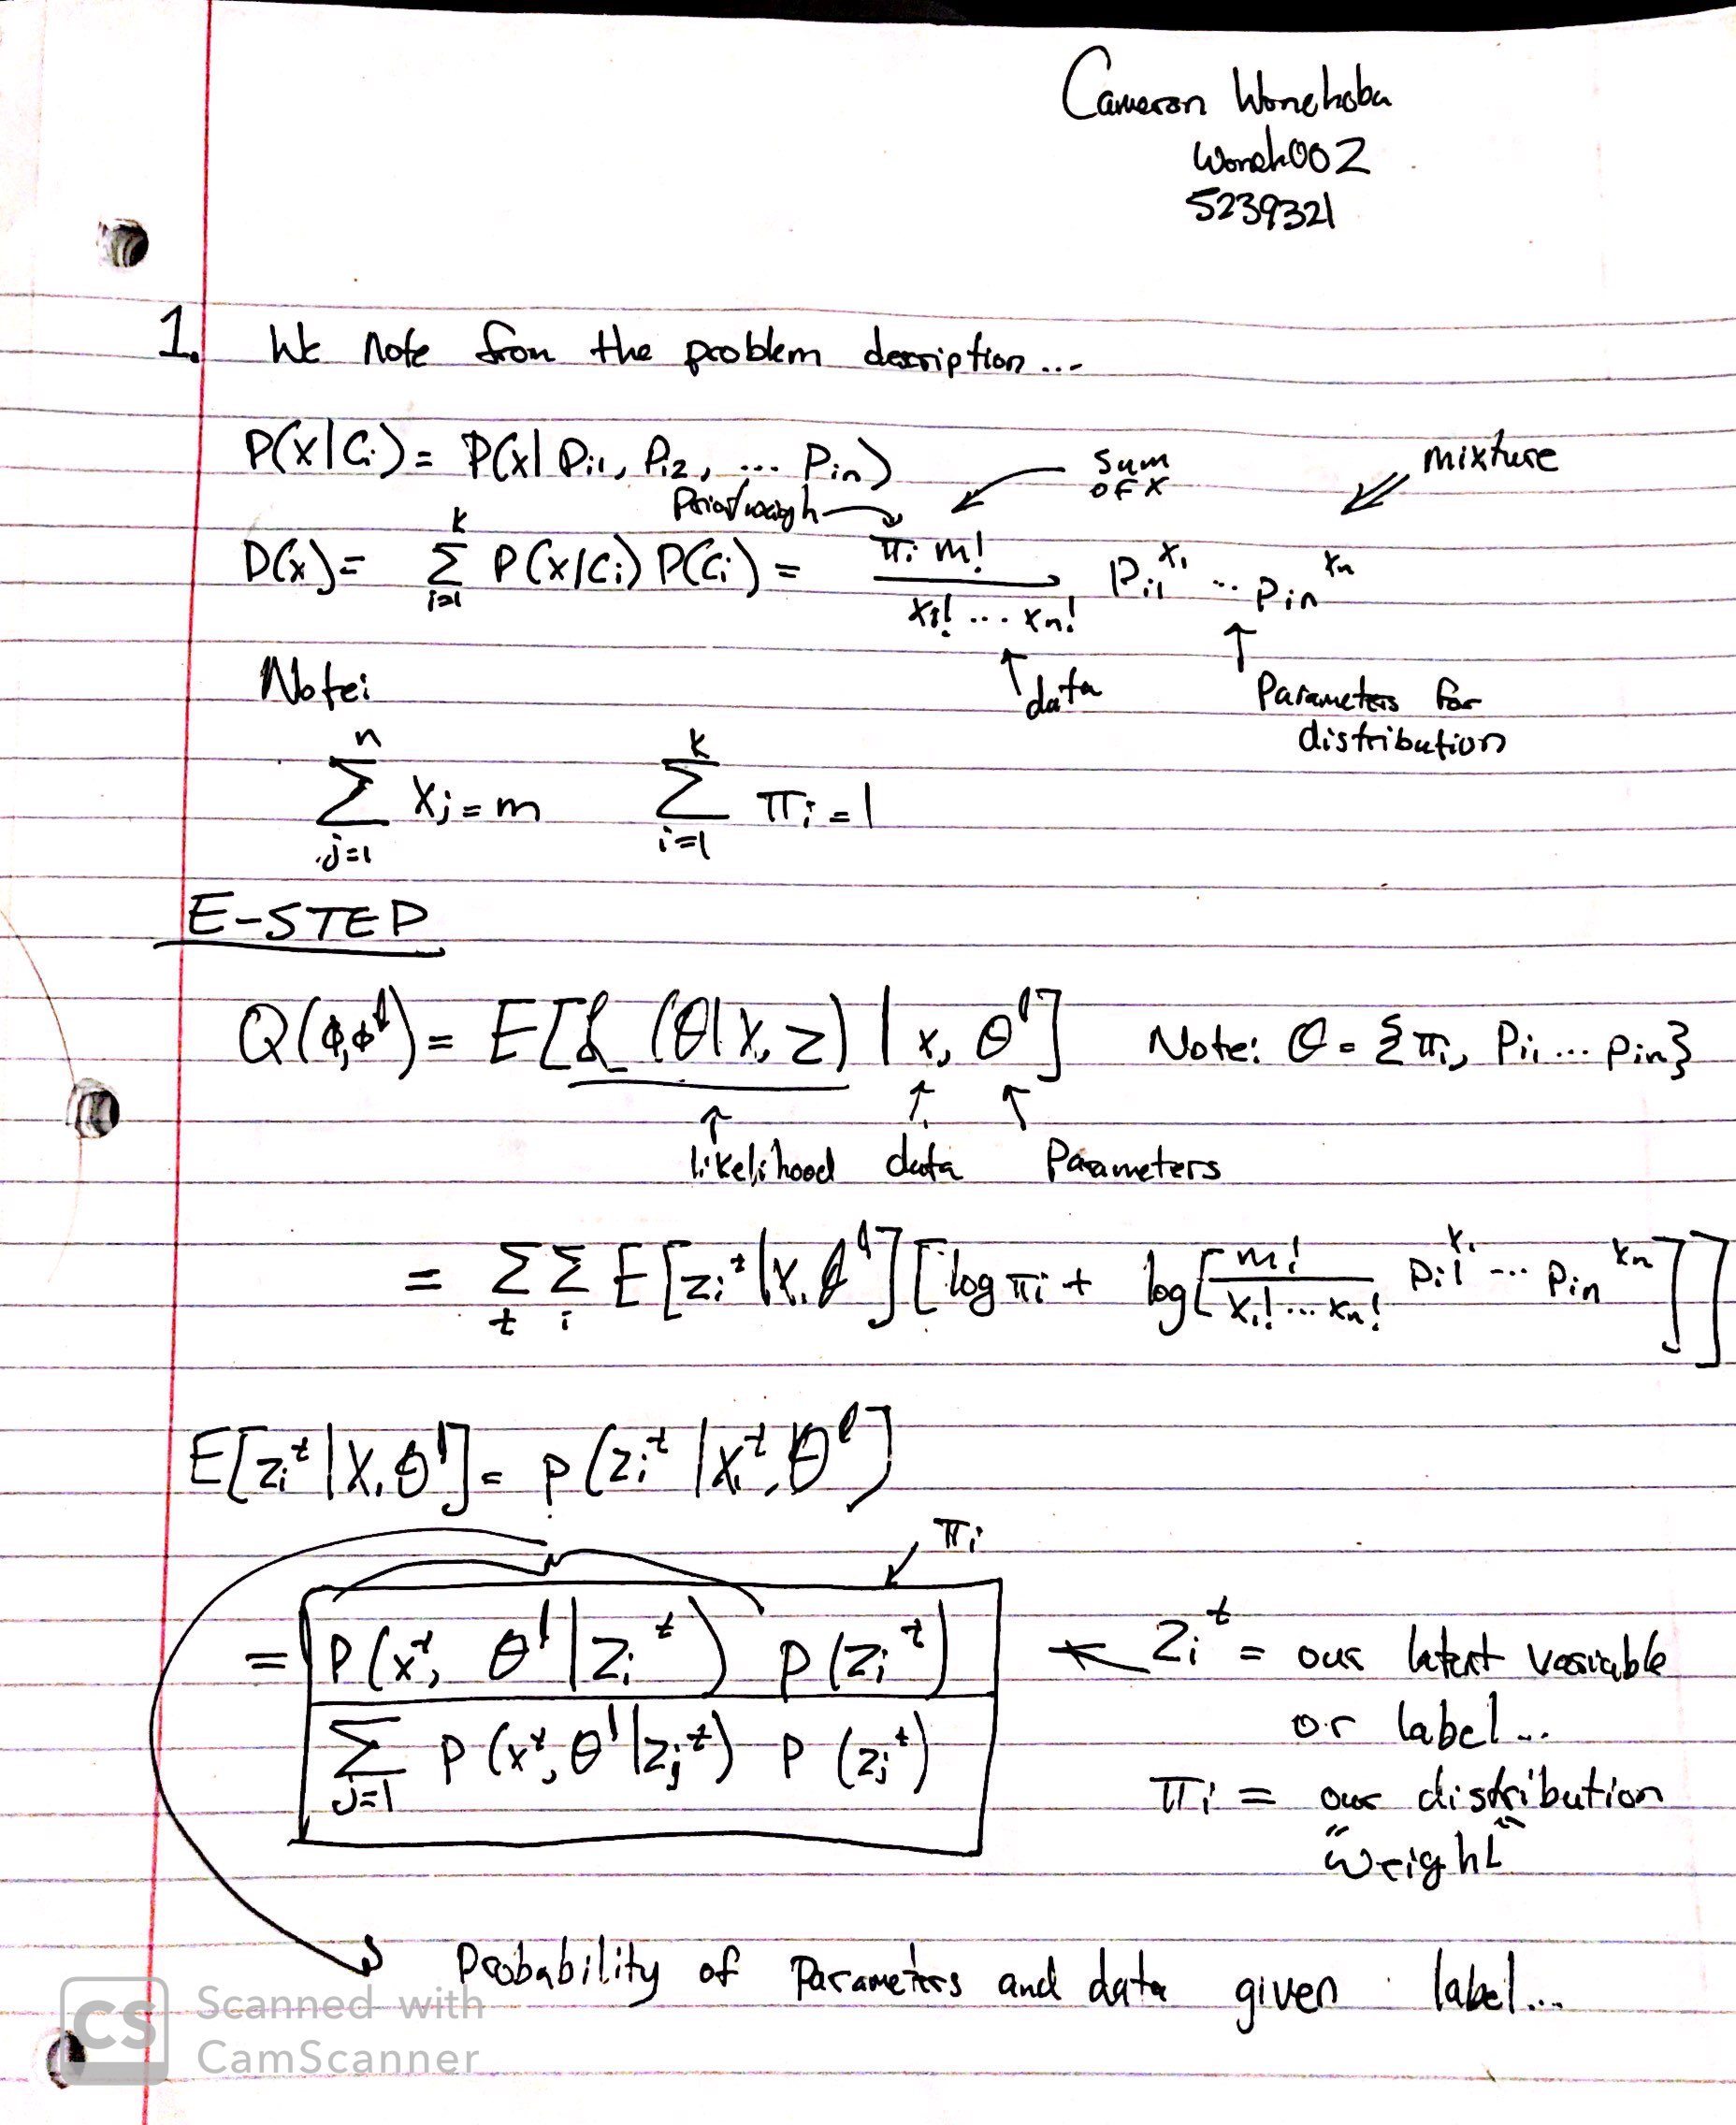 Cameron Wonchoba
wonch002
5239321
1. We note from the problem description...
P(x|Ci) = P(x| Pi1, Pi2, ... Pin)
sum of x
mixture
Prior/weigh
P(x) = Σ_{i=1}^{k} P(x|Ci) P(Ci) = πi m! / x1! ... xn! Pi1^x1 ... Pin^xn
Note:
data
Parameters for
distribution
Σ_{j=1}^{n} Xj = m Σ_{i=1}^{k} πi = 1
E-STEP
Q(φ,φ^l) = E[L (θ|X, Z) | x, θ^l] Note: θ = {πi, Pi1 ... Pin}
likelihood data Parameters
= Σ_t Σ_i E[zi^t|X,θ^l][log πi + log[m! / x1! ... xn! Pi1^x1 ... Pin^xn]]
E[zi^t|X,θ^l] = P(zi^t |x^t,θ^l)
πi
= P(x^t, θ^l|zi^t) P(zi^t) / Σ_{j=1} P(x^t, θ^l|zj^t) P(zj^t)
zi^t = our latent variable
or label...
πi = our distribution
"weight"
Probability of Parameters and data given label...
CS Scanned with
CamScanner